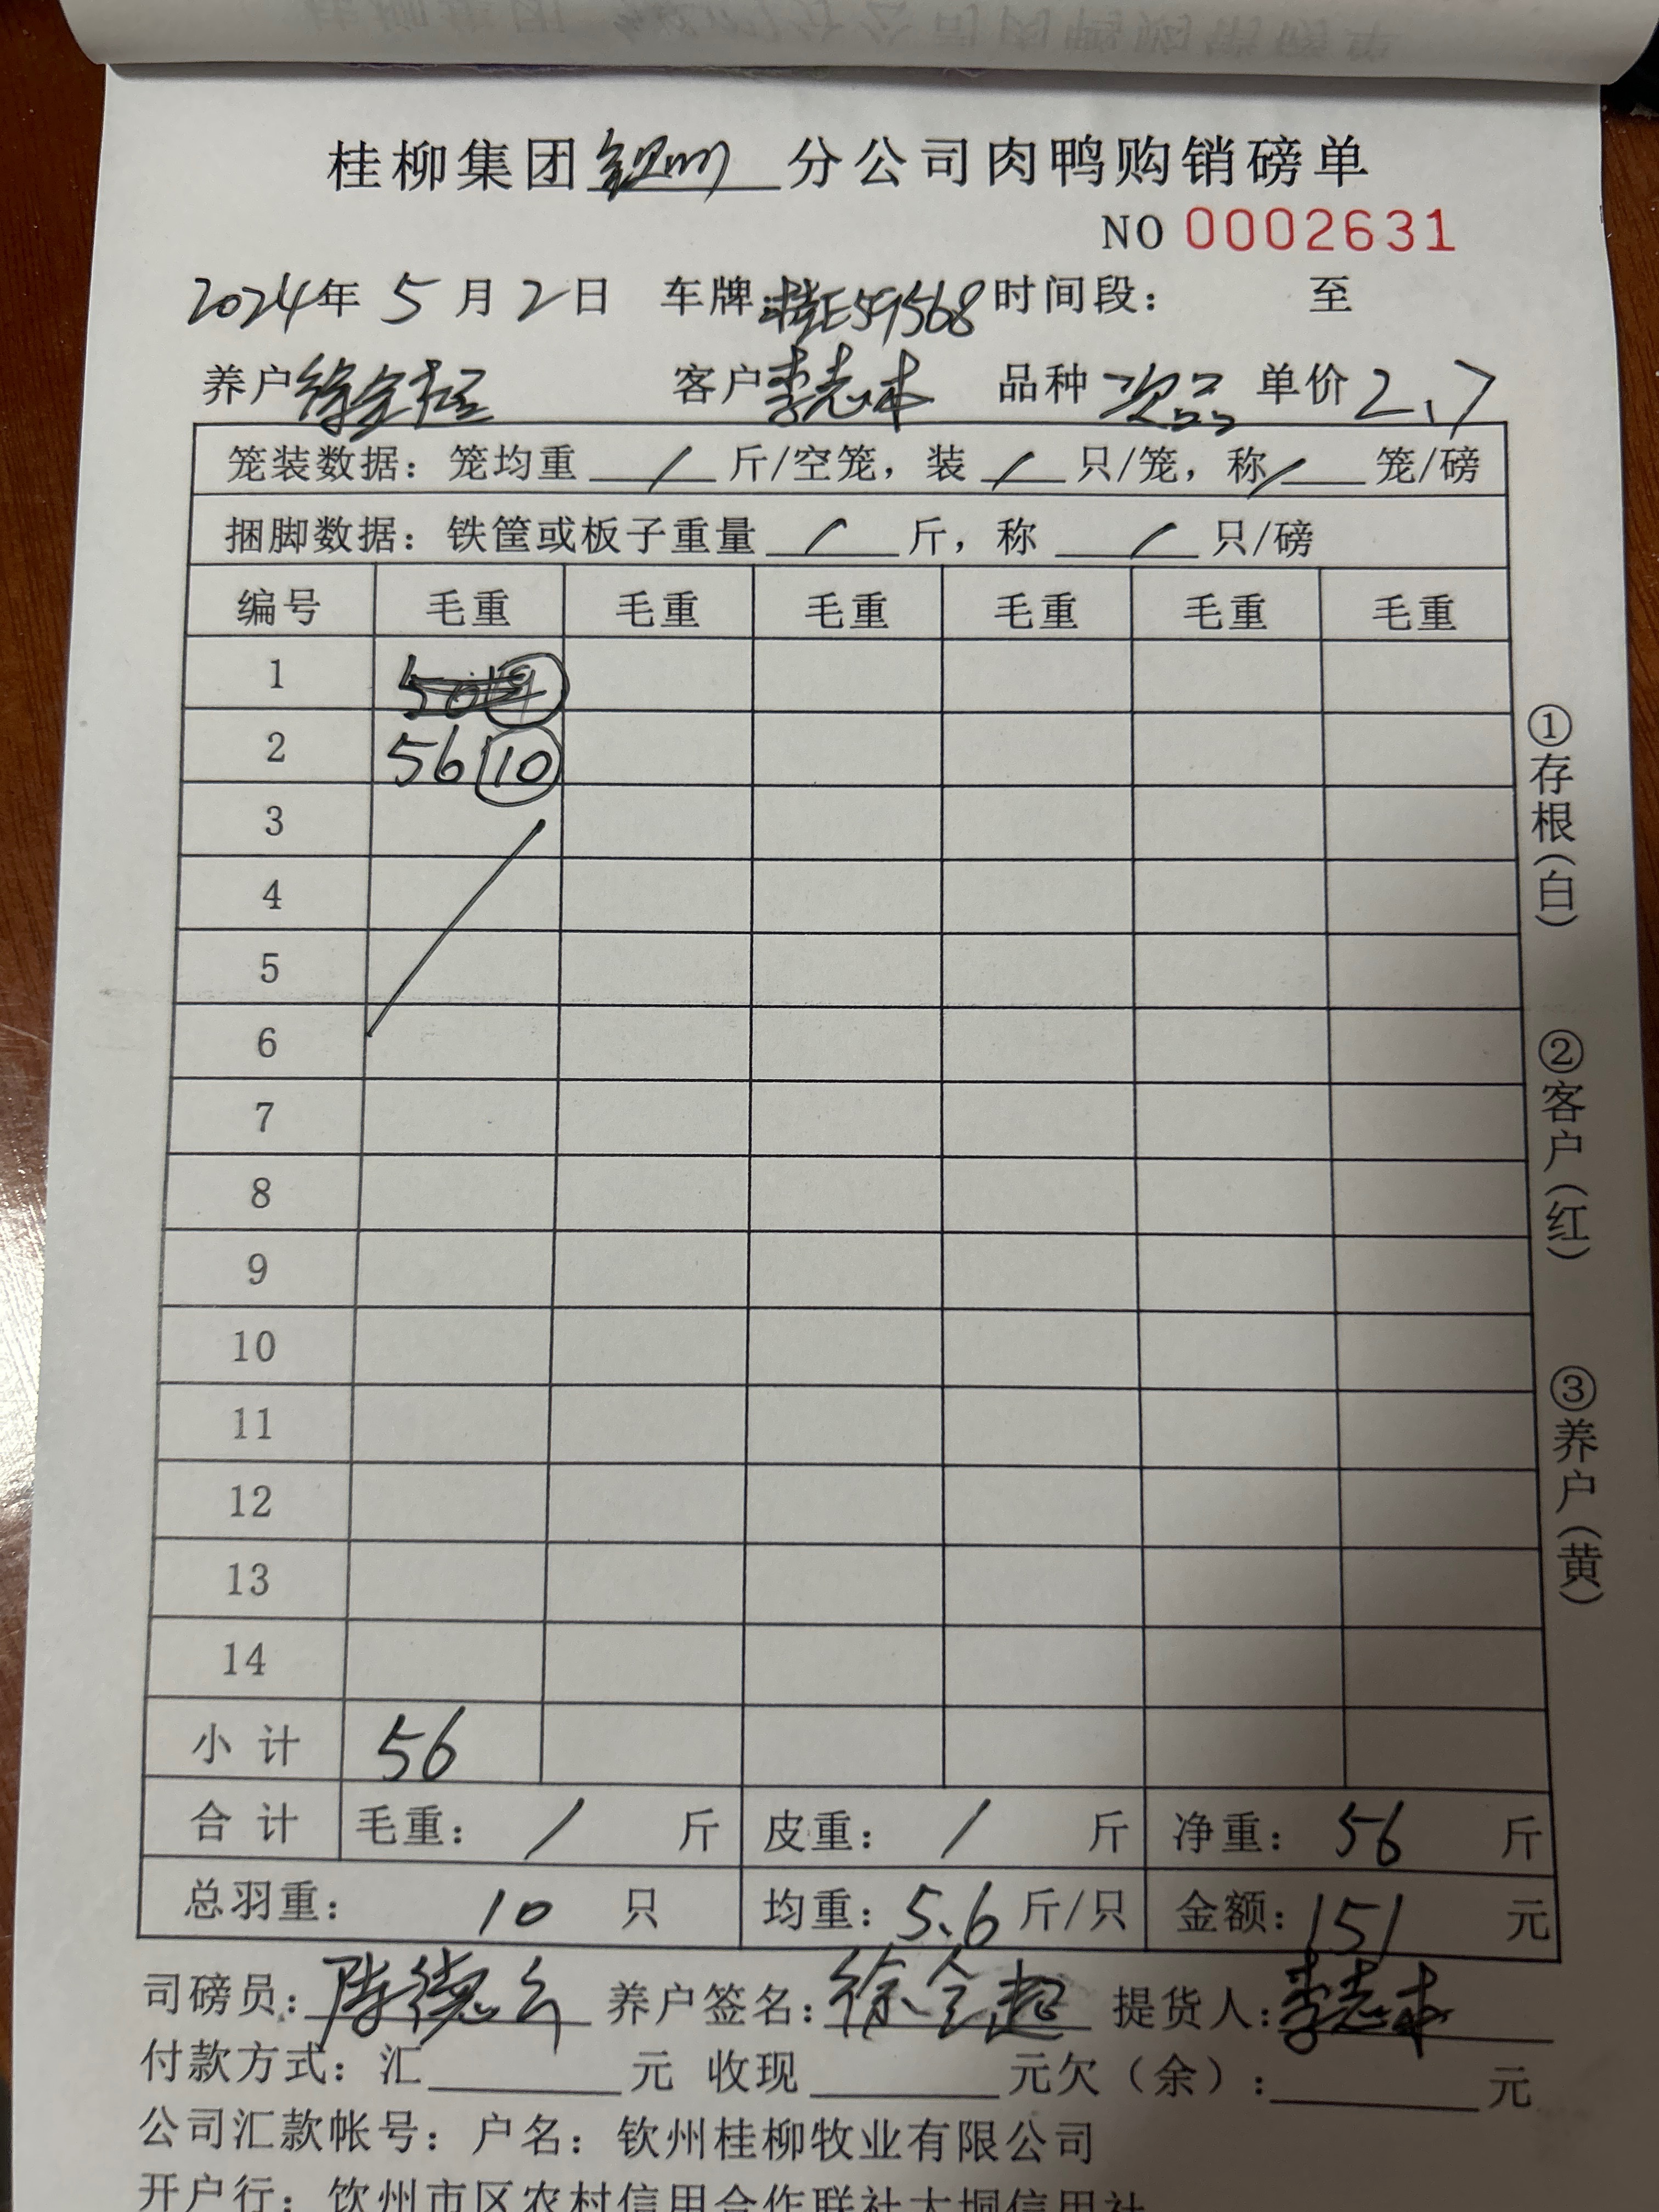 桂柳集团钦州分公司肉鸭购销磅单
NO 0002631
2024年 5 月 2 日 车牌:桂E59568 时间段: 至
养户 客户李志本 品种 次品 单价 2.7
笼装数据: 笼均重 / 斤/空笼, 装 / 只/笼, 称 / 笼/磅
捆脚数据: 铁筐或板子重量 / 斤, 称 / 只/磅
编号 毛重 毛重 毛重 毛重 毛重 毛重
1
2 56 10
3
4
5
6
7
8
9
10
11
12
13
14
小计 56
合计 毛重: / 斤 皮重: / 斤 净重: 56 斤
总羽重: 10 只 均重: 5.6 斤/只 金额: 151 元
司磅员: 陈德 养户签名: 徐 提货人: 李志本
付款方式: 汇 元 收现 元欠(余): 元
公司汇款帐号: 户名: 钦州桂柳牧业有限公司
开户行: 钦州市区农村信用合作联社大垌信用社
①存根(白)
②客户(红)
③养户(黄)